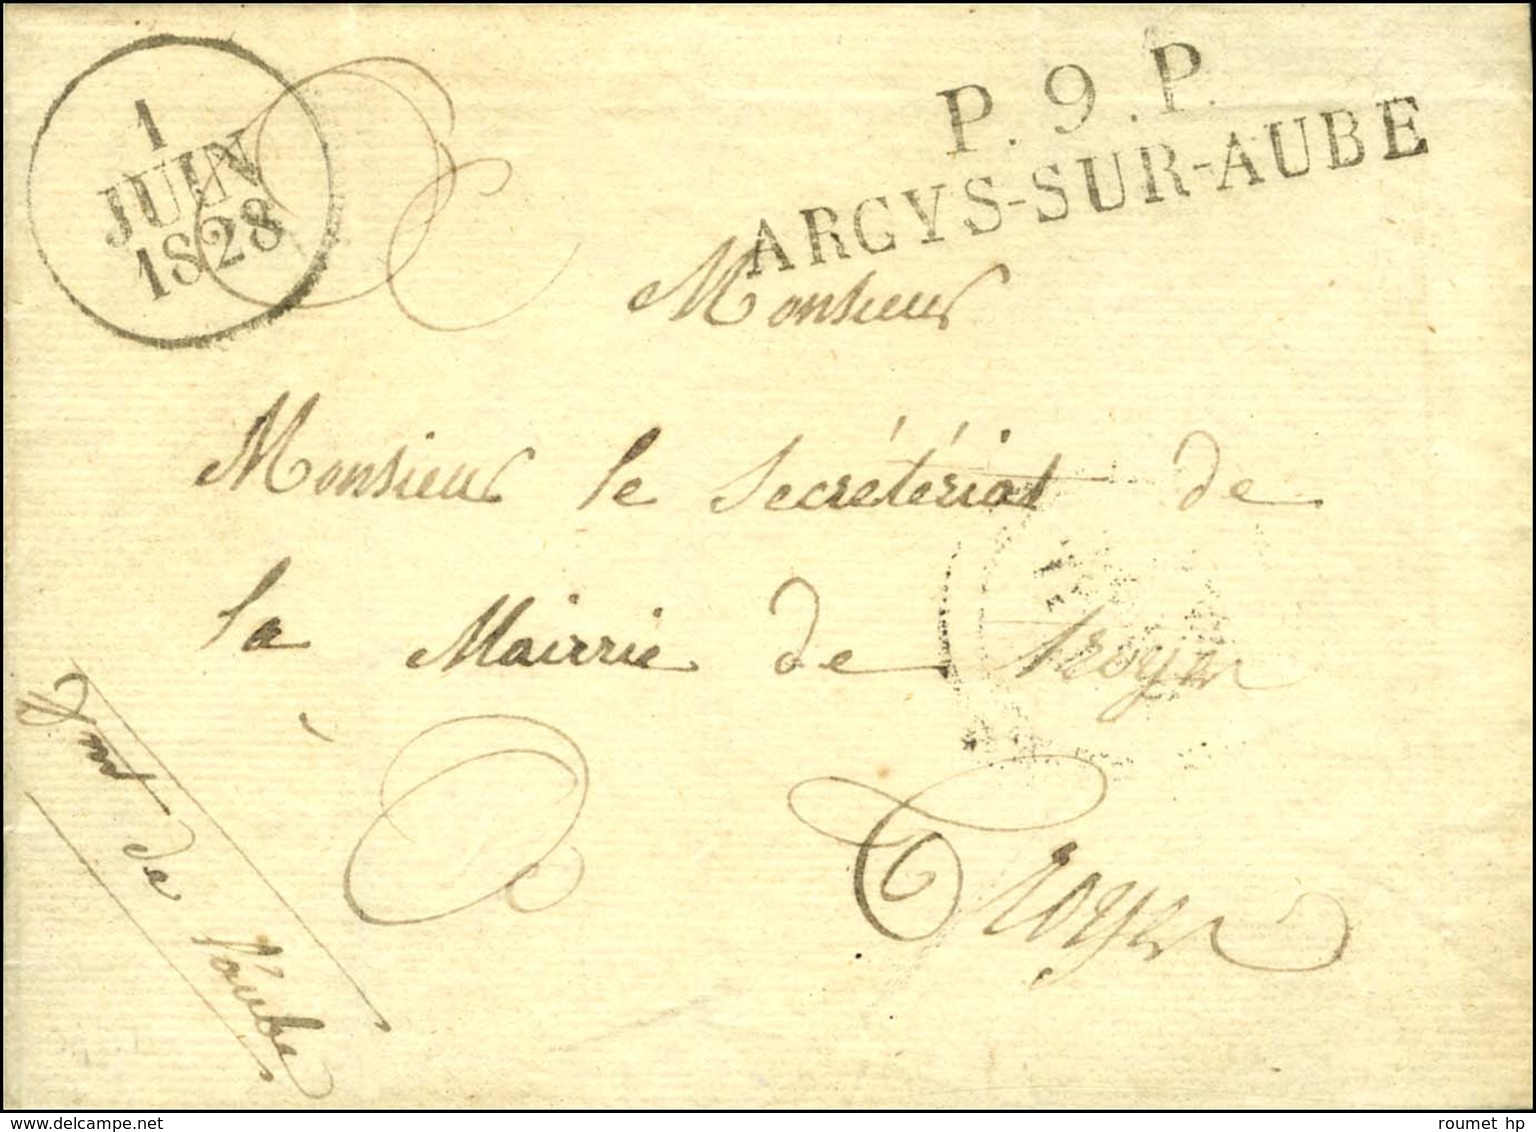 1
JUIN
1828
P. 9 . P.
ARCYS-SUR-AUBE
Monsieur
Monsieur le Secrétériat de
la Mairrie de Troyes
à
Troyes
Dmt de l'aube
roumet hp
delcampe.net